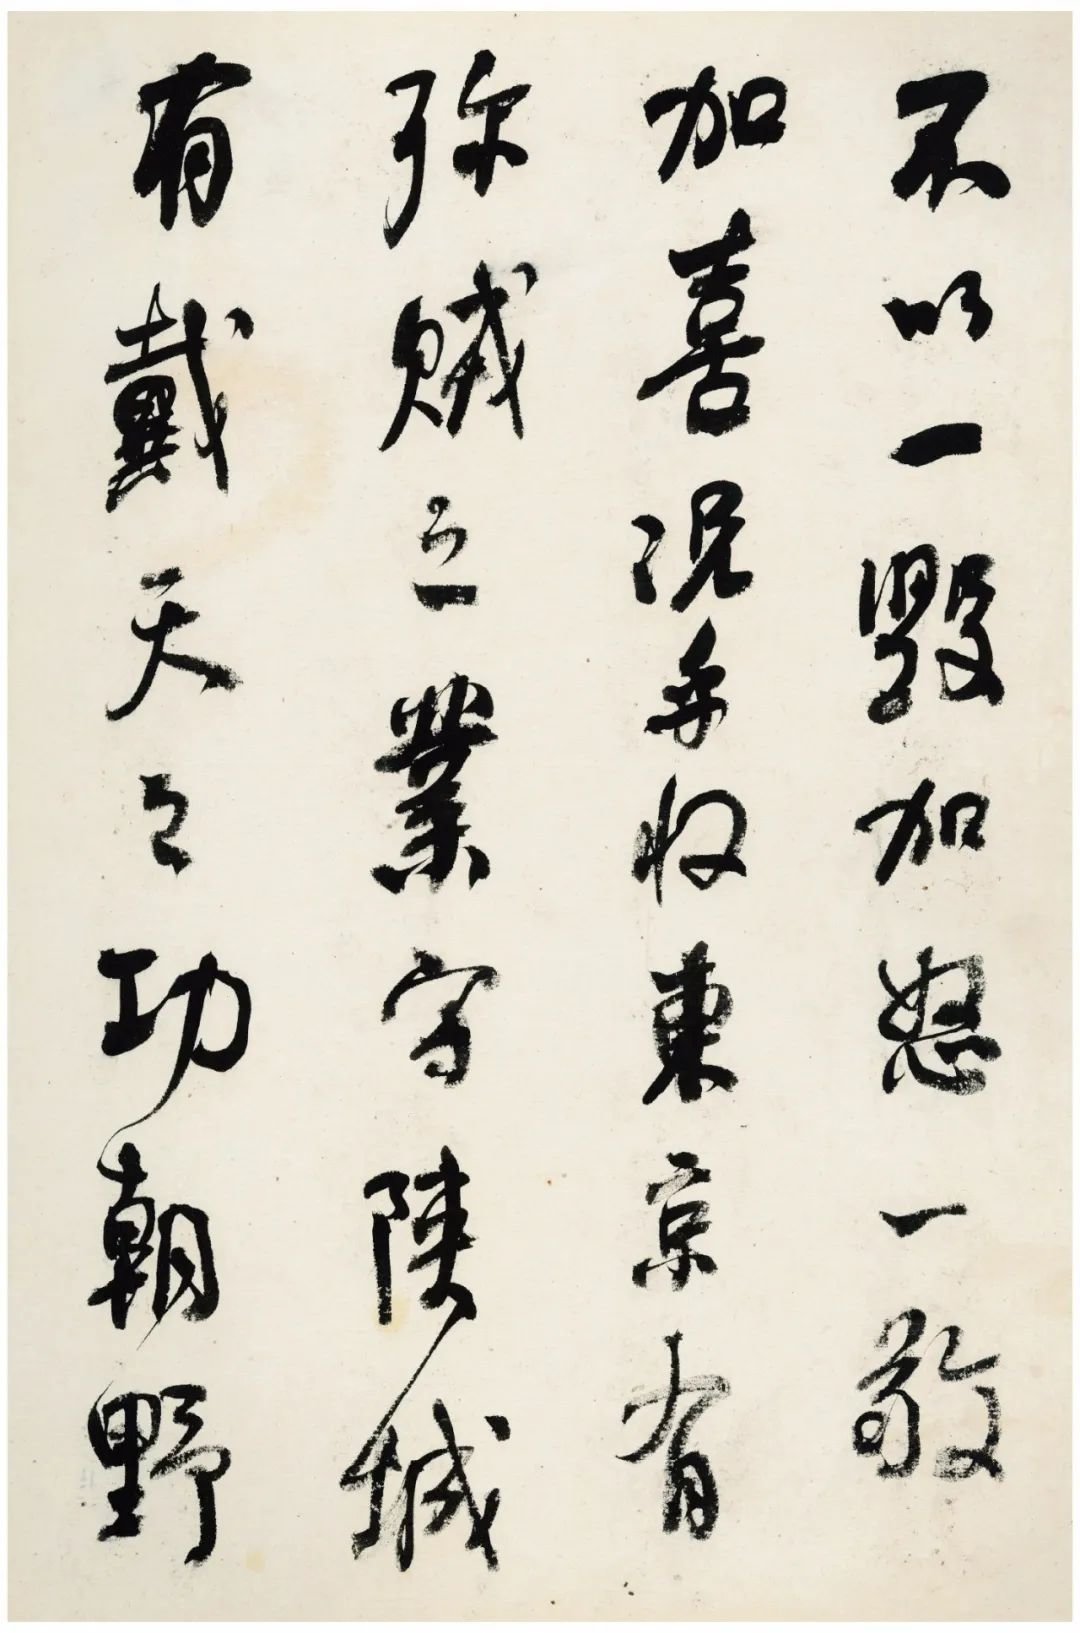 不以一毀加怒一敬
加喜況乎收東京有
殄賊之業守陝城
有戴天之功朝野